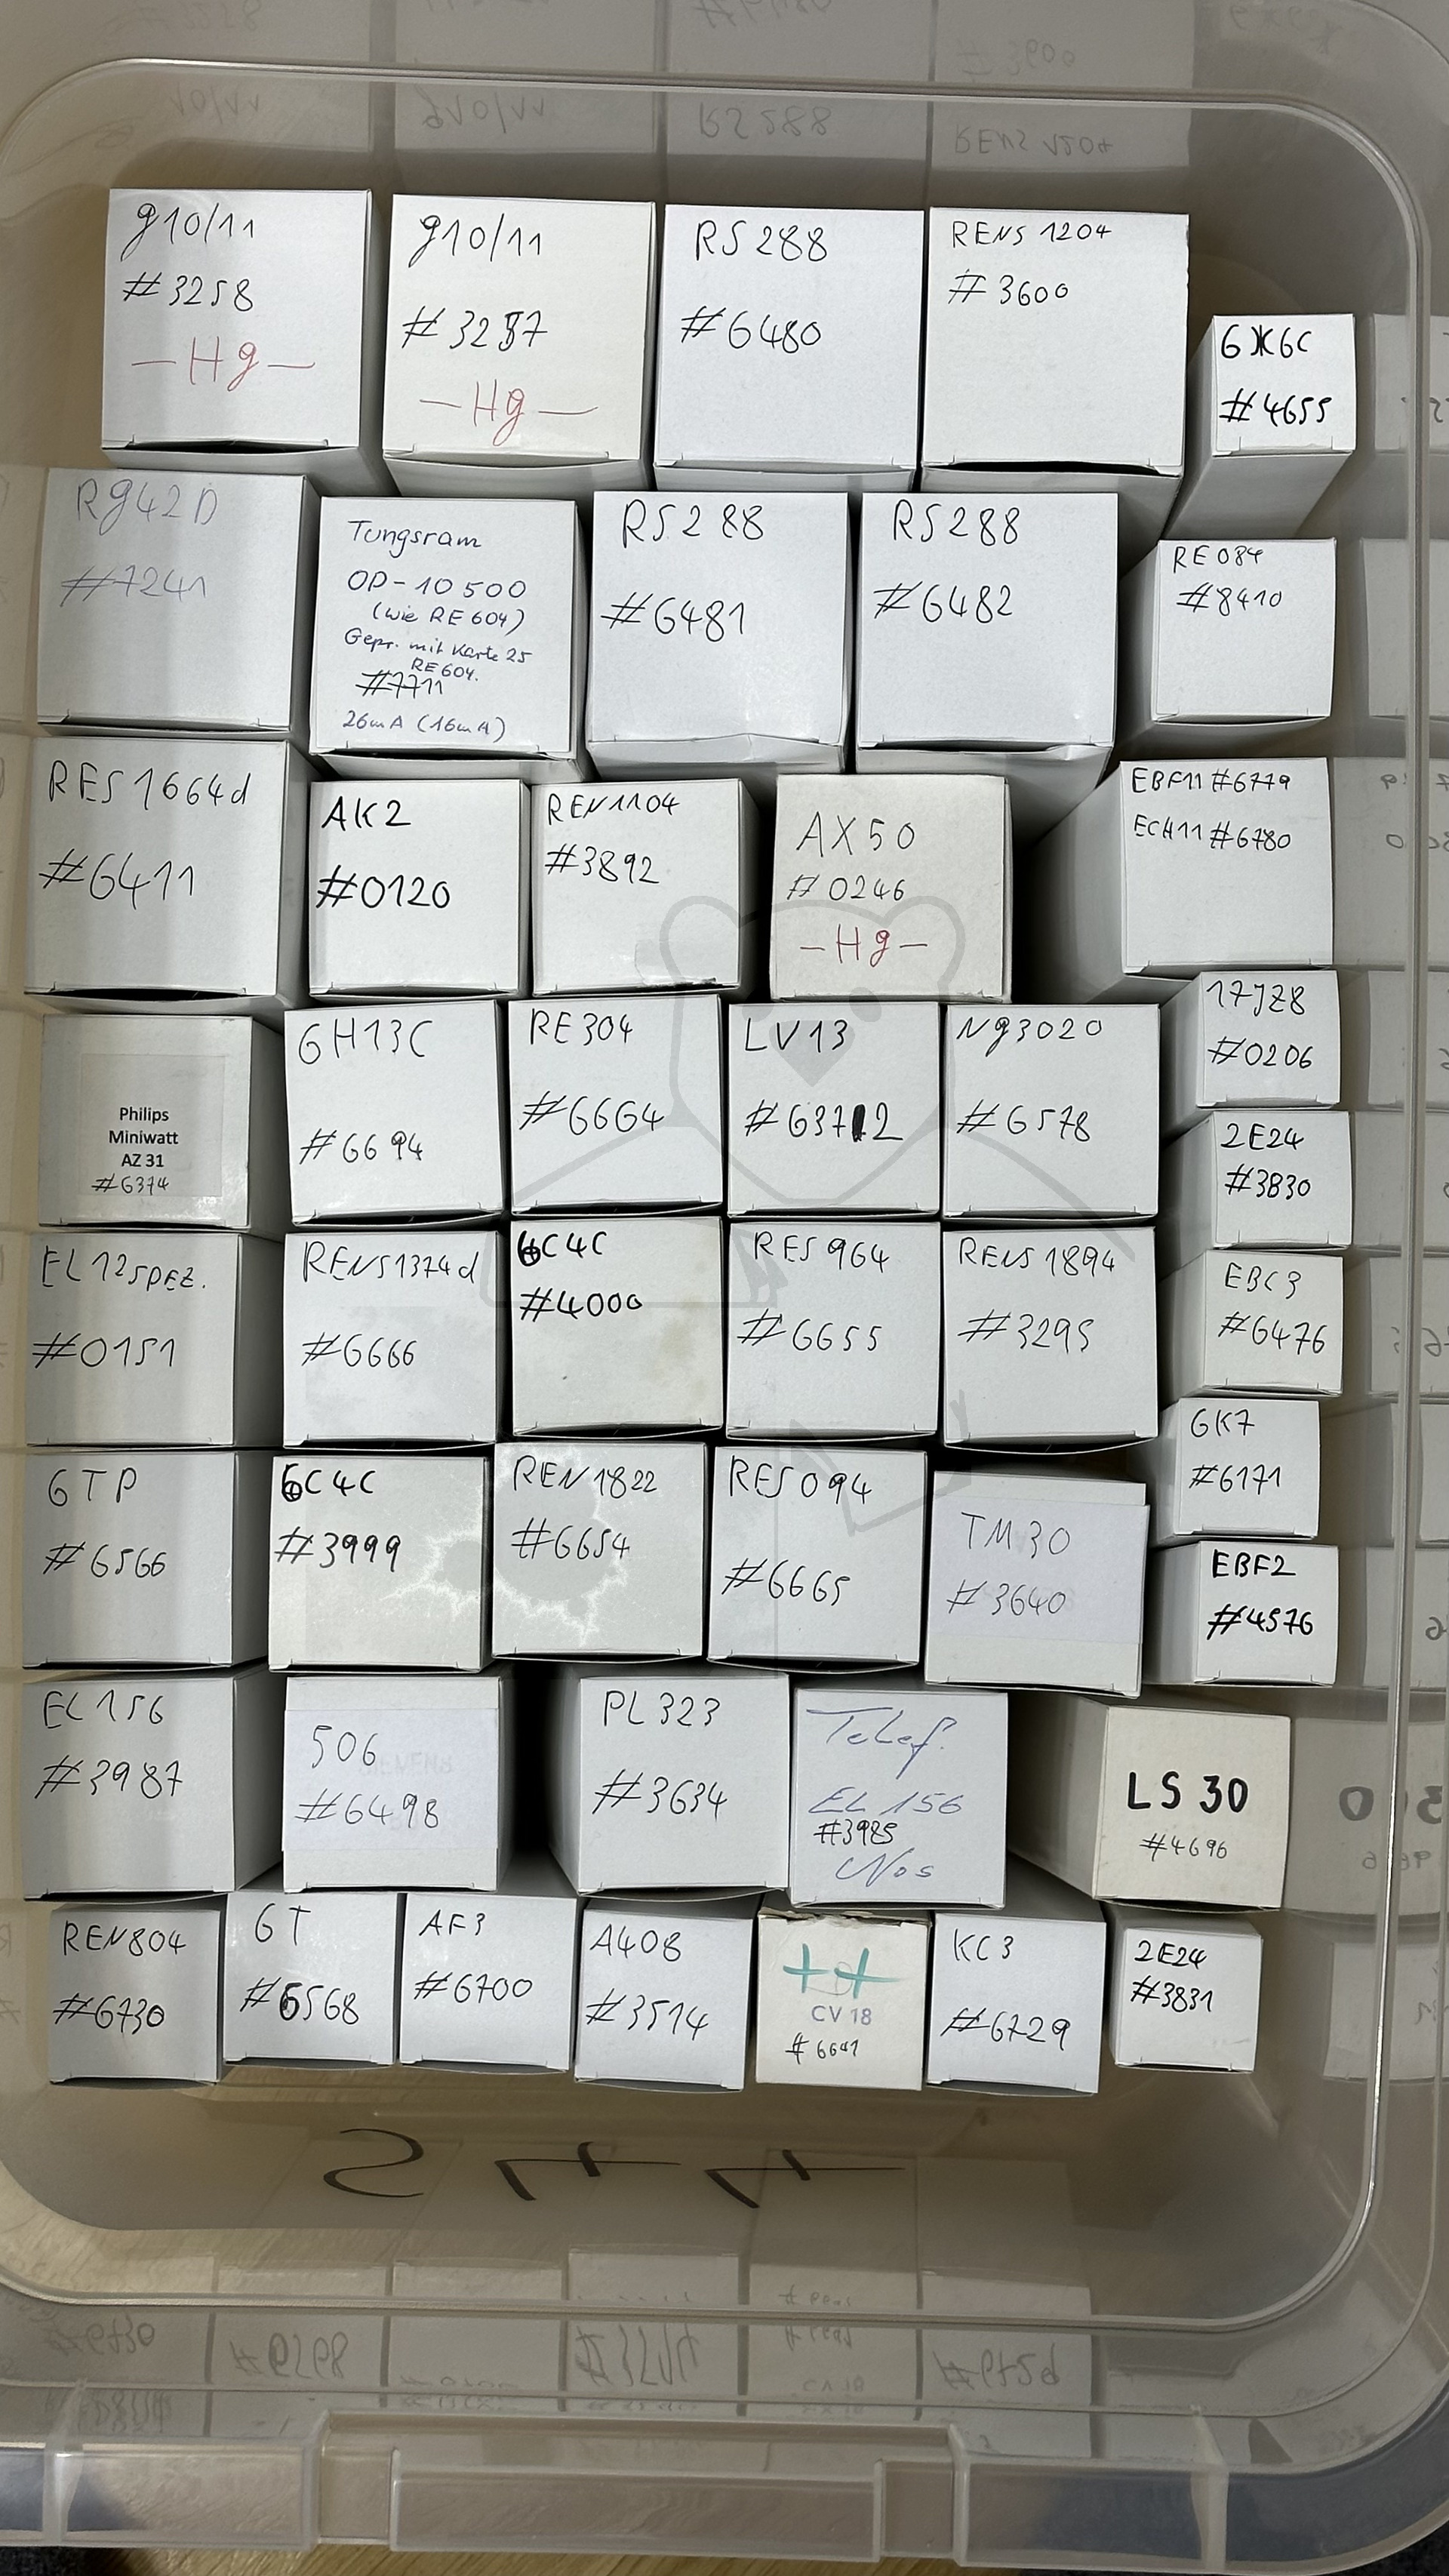 g10/11
#3258
-Hg-
g10/11
#3257
-Hg-
RS 288
#6480
RENS 1204
#3600
6Ж6С
#4655
Rg42D
#7241
Tungsram
OP-10500
(wie RE 604)
Gepr. mit Karte 25
RE604.
#7711
26mA (16mA)
RS 288
#6481
RS 288
#6482
RE 084
#8410
RES 1664d
#6411
AK2
#0120
REN1104
#3892
AX50
#0246
-Hg-
EBF11 #6779
ECH11 #6780
17JZ8
#0206
Philips
Miniwatt
AZ 31
#6374
6H13C
#6694
RE 304
#6664
LV 13
#6372
Ng3020
#6578
2E24
#3830
EL12 SPEZ.
#0151
RENS1374d
#6666
6C4C
#4000
RES 964
#6655
RENS 1894
#3295
EBC3
#6476
6K7
#6171
6TP
#6566
6C4C
#3999
REN 1822
#6654
RES 094
#6665
TM30
#3640
EBF2
#4576
EL 156
#3987
506
#6498
PL 323
#3634
Telef.
EL 156
#3985
Nos
LS 30
#4696
REN804
#6730
6T
#6568
AF3
#6700
A408
#3514
++
CV 18
KC3
#6729
2E24
#3831